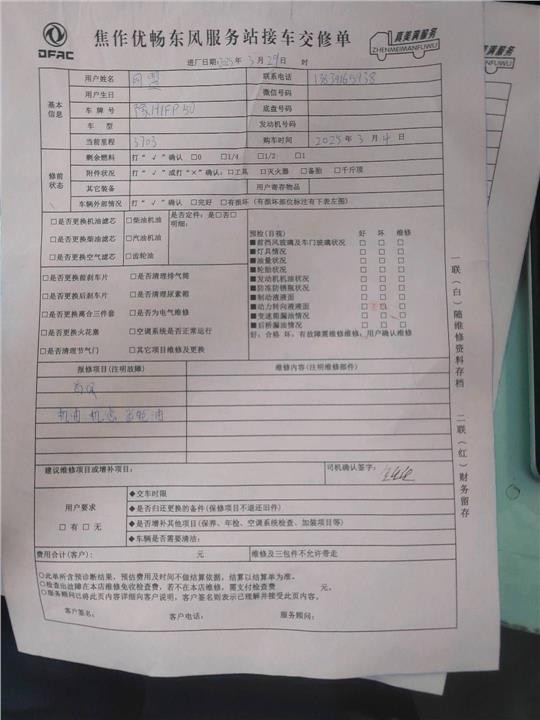 DFAC
焦作优畅东风服务站接车交修单
真美满服务
ZHENMEIMANFUWU
进厂日期:2025年3月29日 时
基本信息
用户姓名 联系电话
用户生日 微信号码
车牌号 底盘号码
车 型 发动机号码
当前里程 3703 购车时间 2025年3月4日
修前状态
剩余燃料 打“√”确认 □0 □1/4 □1/2 □1
附件状况 打“√”或打“×”确认:□工具 □灭火器 □备胎 □千斤顶
其它装备 用户寄存物品
车辆外部情况 打“√”确认 □完好 □有损坏(有损坏部位标注有下表左图)
□是否更换机油滤芯 □柴油机油
□是否更换柴油滤芯 □汽油机油
□是否更换空气滤芯 □齿轮油
是否定件:是□否□
明细:
□是否更换前刹车片 □是否清理排气筒
□是否更换后刹车片 □是否清理尿素箱
□是否更换离合三件套 □是否为电气维修
□是否更换火花塞 □空调系统是否正常运行
□是否清理节气门 □其它项目维修及更换
预检(目视) 好 坏 维修
■前挡风玻璃及车门玻璃状况 □ □ □
■灯具情况 □ □ □
■油量状况 □ □ □
■轮胎状况 □ □ □
■发动机机油状况 □ □ □
■防冻防锈瓶状况 □ □ □
■制动液液面 □ □ □
■动力转向液液面 □ □ □
■变速箱漏油情况 □ □ □
■后桥漏油情况 □ □ □
好:合格 坏:有故障需维修维修:用户确认维修
报修项目(注明故障) 维修内容(注明维修部件)
首保
机油 机滤 齿轮油
建议维修项目或增补项目: 司机确认签字:
用户要求
□有□无
◆交车时限
◆是否归还更换的备件(保修项目不退还旧件)
◆是否增补其他项目(保养、年检、空调系统检查、加装项目等)
◆车辆是否需要清洁:
费用合计(客户): 元 维修及三包件不允许带走
○此单所含预诊断结果,预估费用及时间不做结算依据,结算以结算单为准。
○检查出故障在本店维修免收检查费,若不在本店维修,需支付检查费 元。
○服务顾问已将此页内容详细向客户说明,客户签名则表示已理解并接受此页内容。
客户签名: 客户电话: 服务顾问:
一联(白)随维修资料存档 二联(红)财务留存